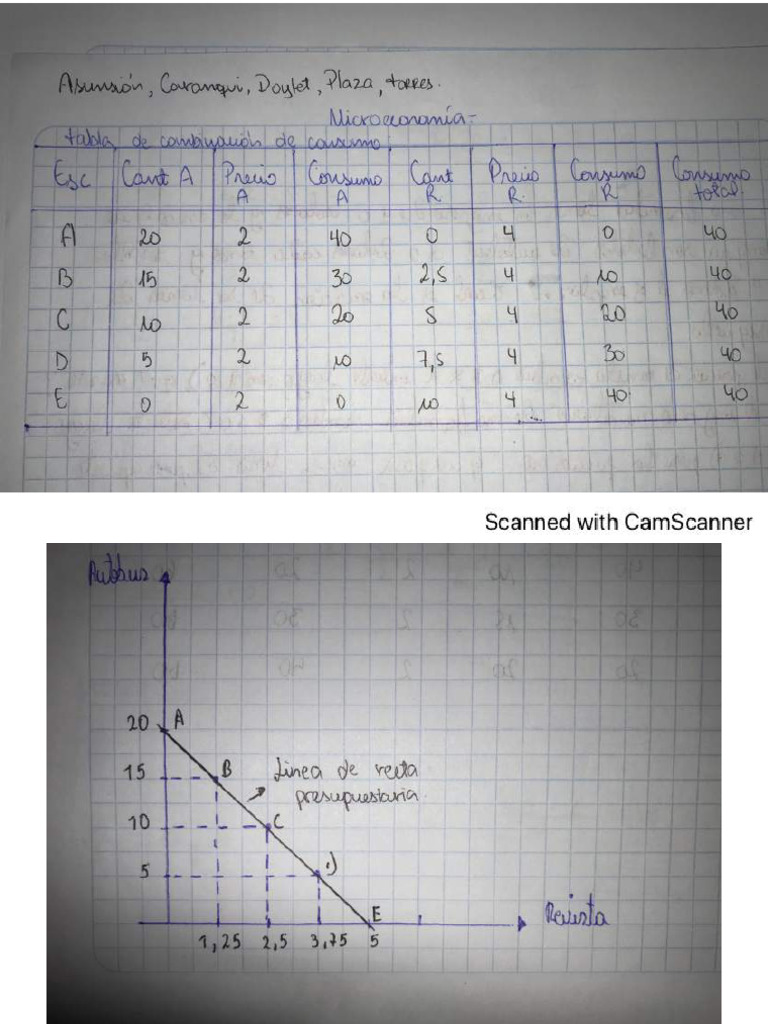 Asunsión, Caranqui, Doylet, Plaza, torres.
Microeconomía=
tabla de combinación de consumo:
Esc Cant A Precio A Consumo A Cant R Precio R. Consumo R Consumo total.
A 20 2 40 0 4 0 40
B 15 2 30 2,5 4 10 40
C 10 2 20 5 4 20 40
D 5 2 10 7,5 4 30 40
E 0 2 0 10 4 40 40
Scanned with CamScanner
Autobus
20 A
15 B
Linea de recta
presupuestaria.
10 C
5 D
E
Revista
1,25 2,5 3,75 5